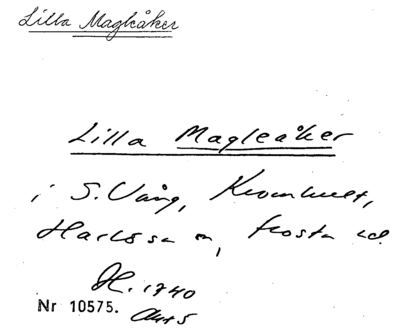 Lilla Magleåker
Lilla Magleåker
i S. Vång, Kvomhult,
Harlösa sn, Frosta hd.
H. 1740
Nr 10575. Akt 5